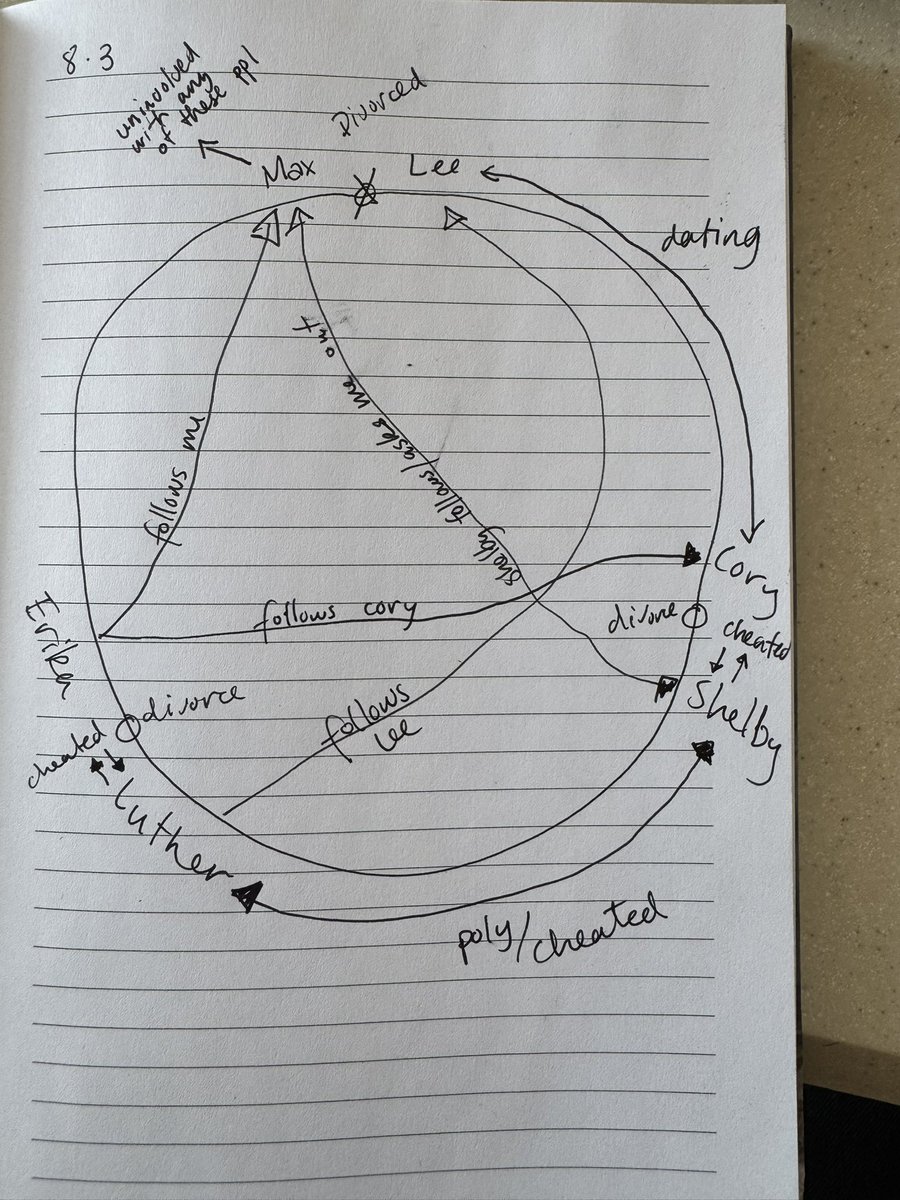 8.3
uninvolved
with any
of these ppl
Divorced
Max
Lee
dating
follows me
shelby follows/asks me out
Cory
follows cory
divorce
cheated
Shelby
Erika
divorce
cheated
follows
Lee
Luther
poly/cheated